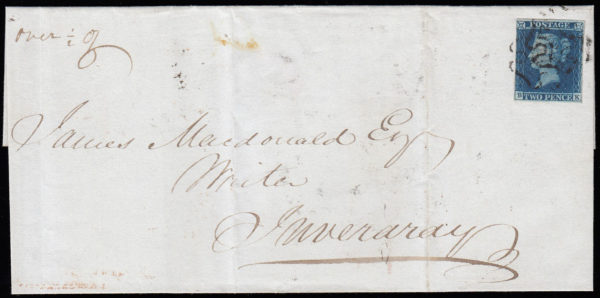 over ½ oz
POSTAGE
TWO PENCE
James Macdonald Esqr
Writer
Inveraray